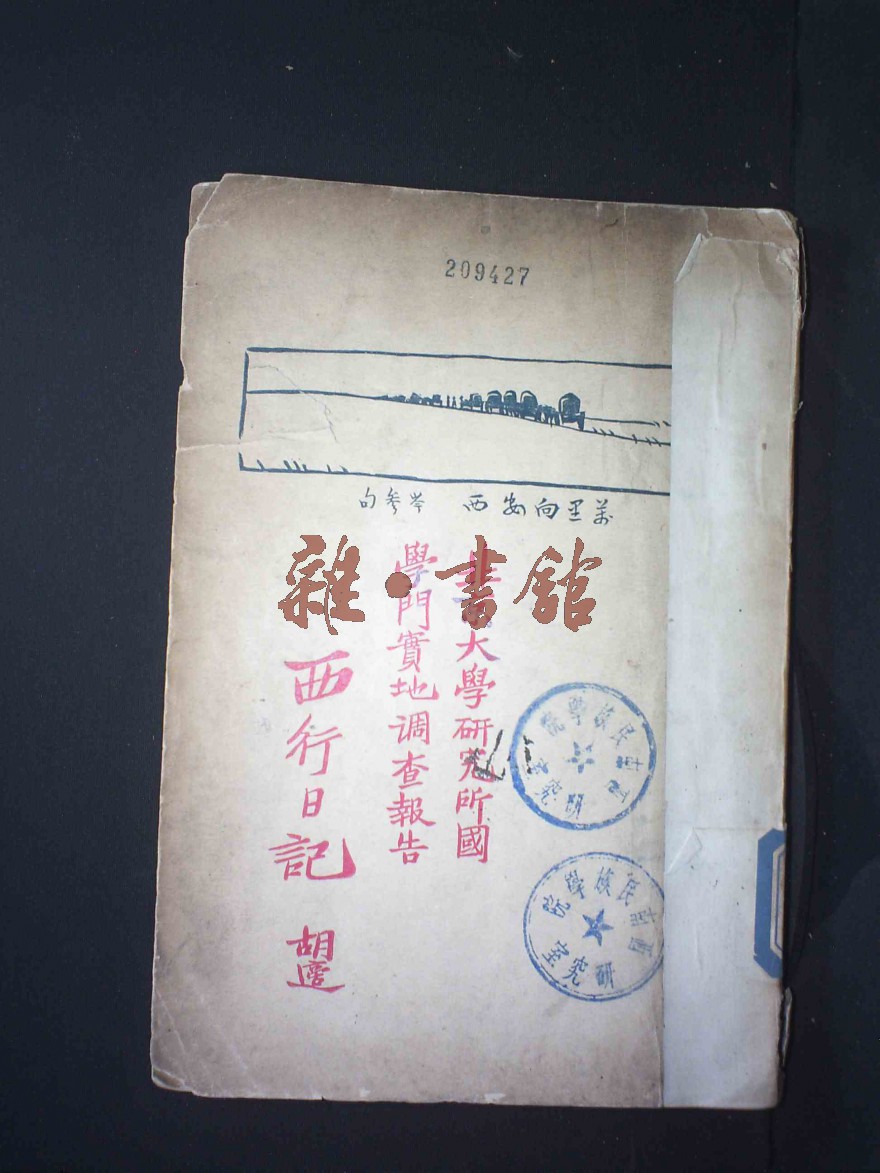 209427
萬里向安西 岑參句
雜·書館
大學研究所國
學門實地調查報告
西行日記
胡適
西南民族學院
研究室
西南民族學院
研究室